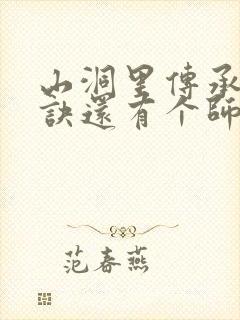 山洞里傳承
訣還有个師
范春燕